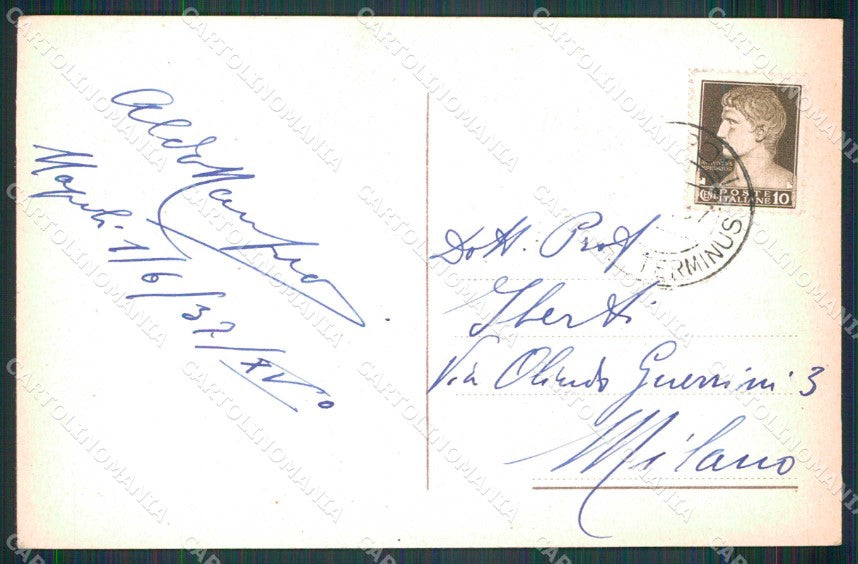 Aldo Manfro
Napoli 1/6/37/XV°
CENT. POSTE ITALIANE 10
TERMINUS
Dott. Prof
Iberti
Via Olindo Guerrini 3
Milano
CARTOLINOMANIA